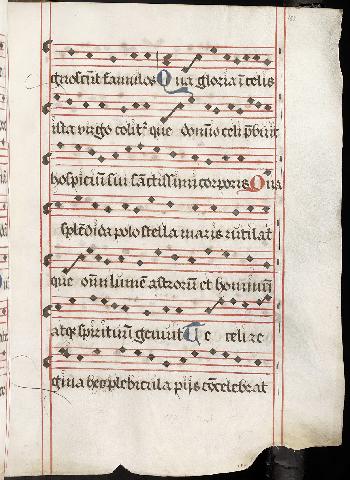 gnoscūt famulos Qua gloria ī celis
ista virgo colit² que domīo celi p̄buit
hospiciū sui sāctissimi corporis Qua
splēdida polo stella maris rutilat
que oīm lumē astrorū et hominū
atqȝ spirituū genuit Te celi re
gina hec plebicula pijs cōcelebrat